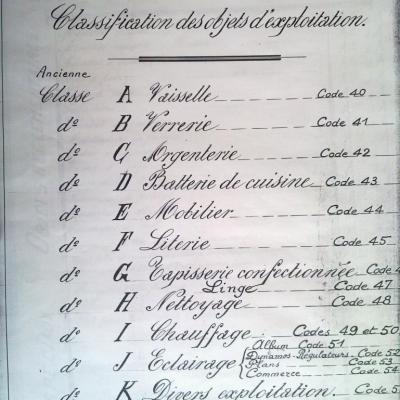 Classification des objets d'exploitation.
Ancienne
Classe A Vaisselle Code 40
dº B Verrerie Code 41
dº C Argenterie Code 42
dº D Batterie de cuisine Code 43
dº E Mobilier Code 44
dº F Literie Code 45
dº G Tapisserie confectionnée Code 4
Linge Code 47
dº H Nettoyage Code 48
dº I Chauffage Codes 49 et 50
Album Code 51
dº J Eclairage { Dynamos-Régulateurs Code 52
Plans Code 53
Commerce Code 54
dº K Divers exploitation. Code 5